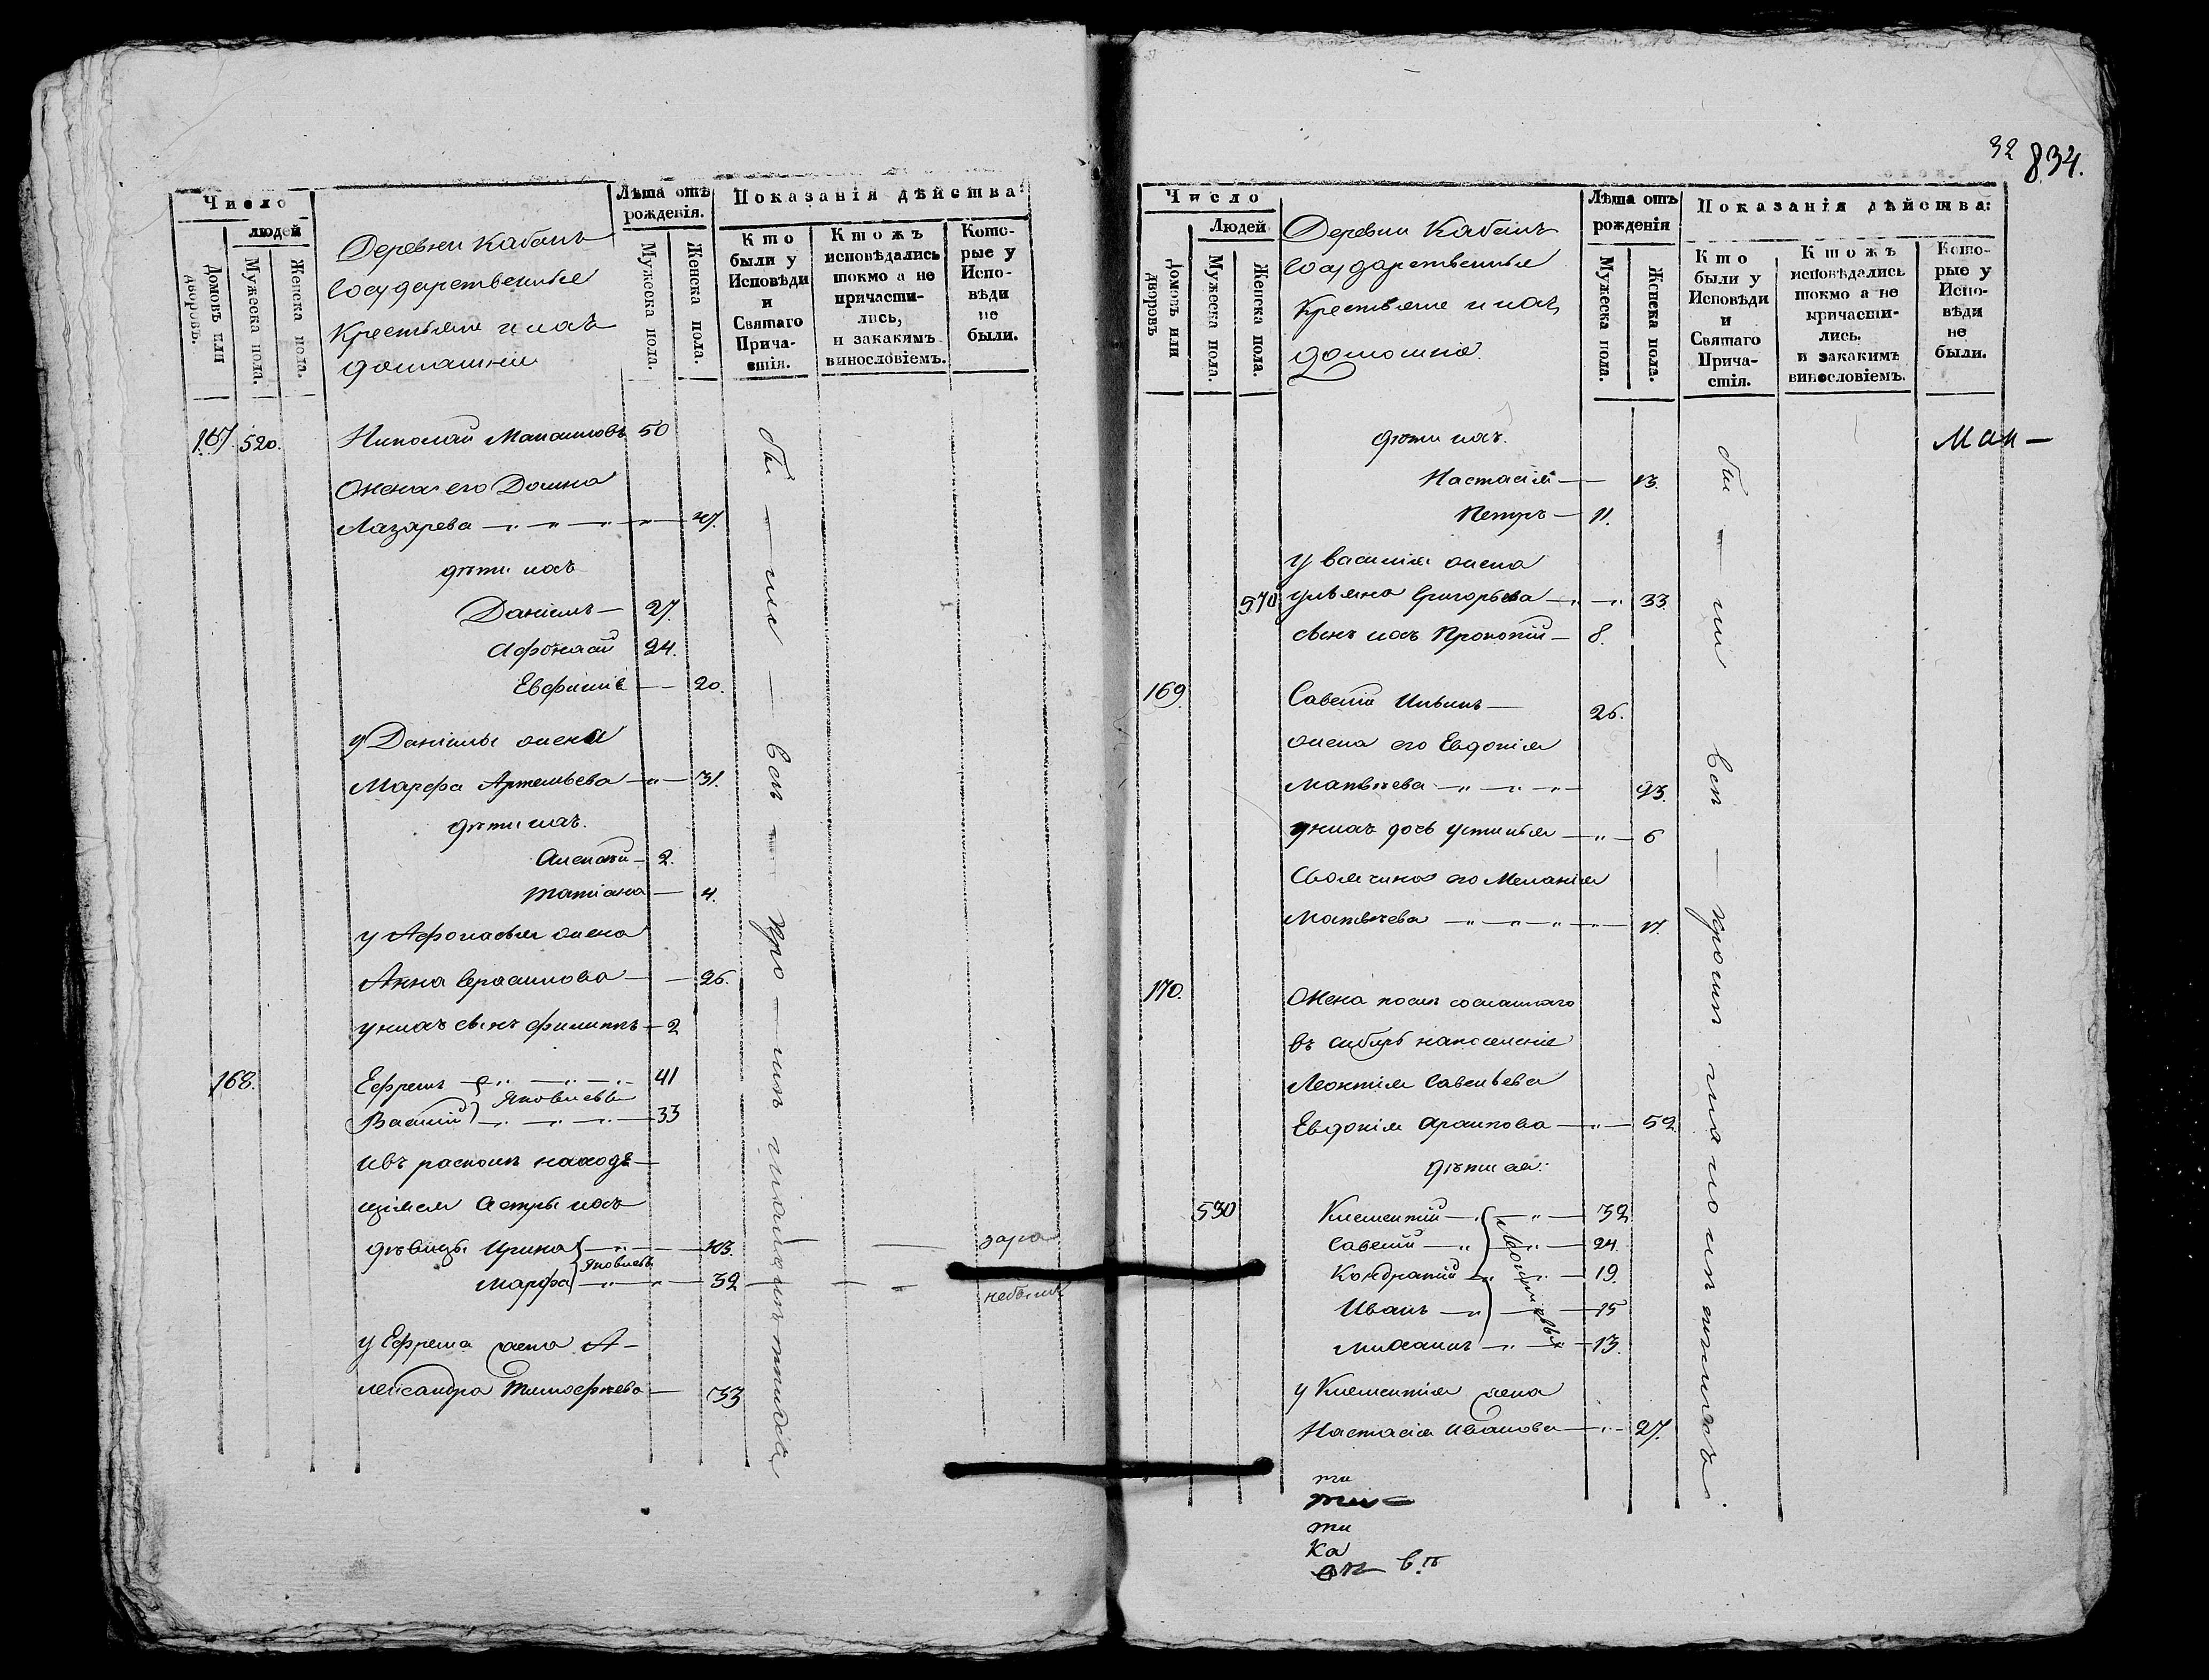 Число
людей
Домовъ или дворовъ.
Мужеска пола.
Женска пола.
Деревни Кабанъ
Государственные
Крестьяне и ихъ
домашніи
Лѣта отъ рожденія.
Мужеска пола.
Женска пола.
Показанія дѣйства:
Кто были у Исповѣди и Святаго Причастія.
Ктожъ исповѣдались токмо а не причастились, и закакимъ винословіемъ.
Которые у Исповѣди не были.
167. 520. Николай 50
Жена его Домна
Лазарева 47.
дѣти ихъ
Даніилъ — 27.
Афонасій 24.
Евфимія — 20.
у Даніилы жена
Марфа Артемьева — 31.
дѣти ихъ.
Алексѣй — 2.
Татіана — 4.
у Афонасья жена
Анна Герасимова — 26.
у нихъ сынъ Филиппъ — 2
168. Ефремъ 41
Яковлевы
Василій 33
Ивъ расколѣ находя—
щіяся сестры ихъ
дѣвицы Ирина — 43.
Яковлевы
Марфа — 32
у Ефрема жена А—
лександра Тимофѣева — 33
бы — ли — Всѣ — кро —
не были
32 834.
Число
Людей
Домовъ или дворовъ
Мужеска пола.
Женска пола.
Деревни Кабанъ
Государственныя
Крестьяне и ихъ
домашніе.
Лѣта отъ рожденія
Мужеска пола.
Женска пола.
Показанія дѣйства:
Кто были у Исповѣди и Святаго Причастія.
Ктожъ исповѣдались токмо а не причастились. и закакимъ винословіемъ.
Которые у Исповѣди не были.
дѣти ихъ. Мал —
Настасія — 13.
Петръ — 11.
у Василія жена
570 Ульяна Григорьева — 33.
сынъ ихъ Прокопій — 8.
169. Савелій Ильинъ — 26.
жена его Евдокія
Матвѣева 23.
у нихъ дочь Устинья — 6
Своячина его Меланія
Матвѣева — 17.
170. Жена послѣ сосланнаго
въ сибирь на поселеніе
Леонтія Савельева
Евдокія Архипова — 52.
дѣти ея:
530 Климентій — 32
Савелій — 24.
Леонтьевы
Кондратій — 19.
Иванъ — 15
Михаилъ — 13.
у Климентія жена
Настасія Иванова — 27.
бы — ли Всѣ — кромѣ малолѣтнихъ
ти
ти
Ка